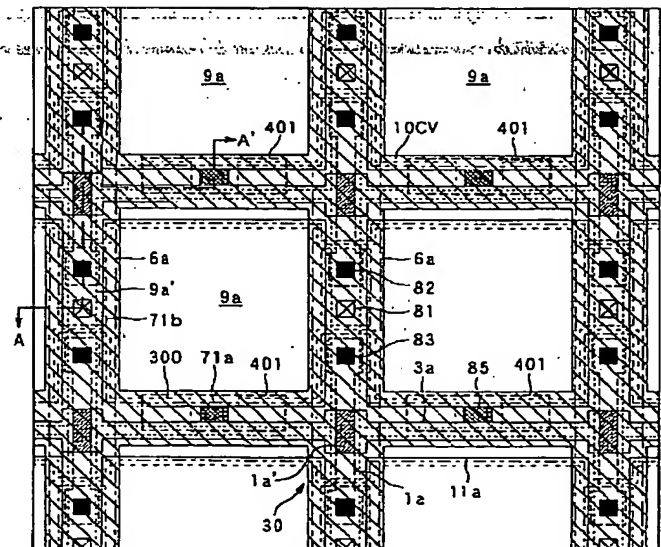 9a
9a
A'
401
10CV
401
6a
6a
9a'
9a
82
A
71b
81
83
300
71a
401
3a
85
401
1a'
1a
11a
30